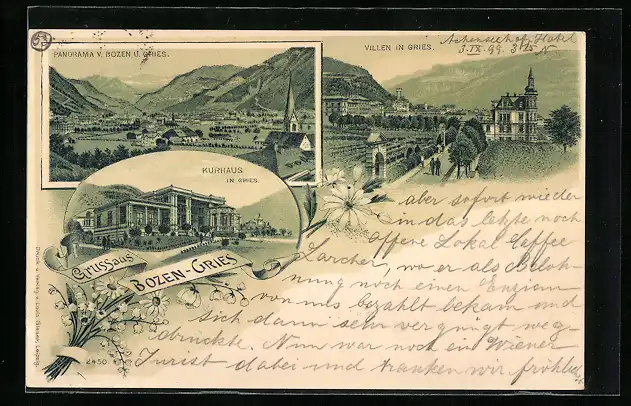 53
PANORAMA V. BOZEN U. GRIES.
VILLEN IN GRIES.
Achenseehof Hotel
3. IX. 99. 3 15 N
KURHAUS
IN GRIES.
Gruss aus
BOZEN-GRIES
aber sofort wieder
in das letzte noch
offene Lokal Caffee
Larcher, wo er als Beloh-
nung noch einen Enzian
von uns bezahlt bekam und
sich dann sehr vergnügt weg-
drückte. Nun war noch ein Wiener
Jurist dabei und tranken wir fröhlich
Druck u. Verlag v. Louis Glaser, Leipzig.
2450